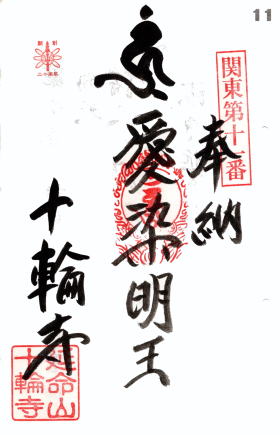 11
関東第十一番
奉納
愛染明王
十輪寺
延命山
十輪寺